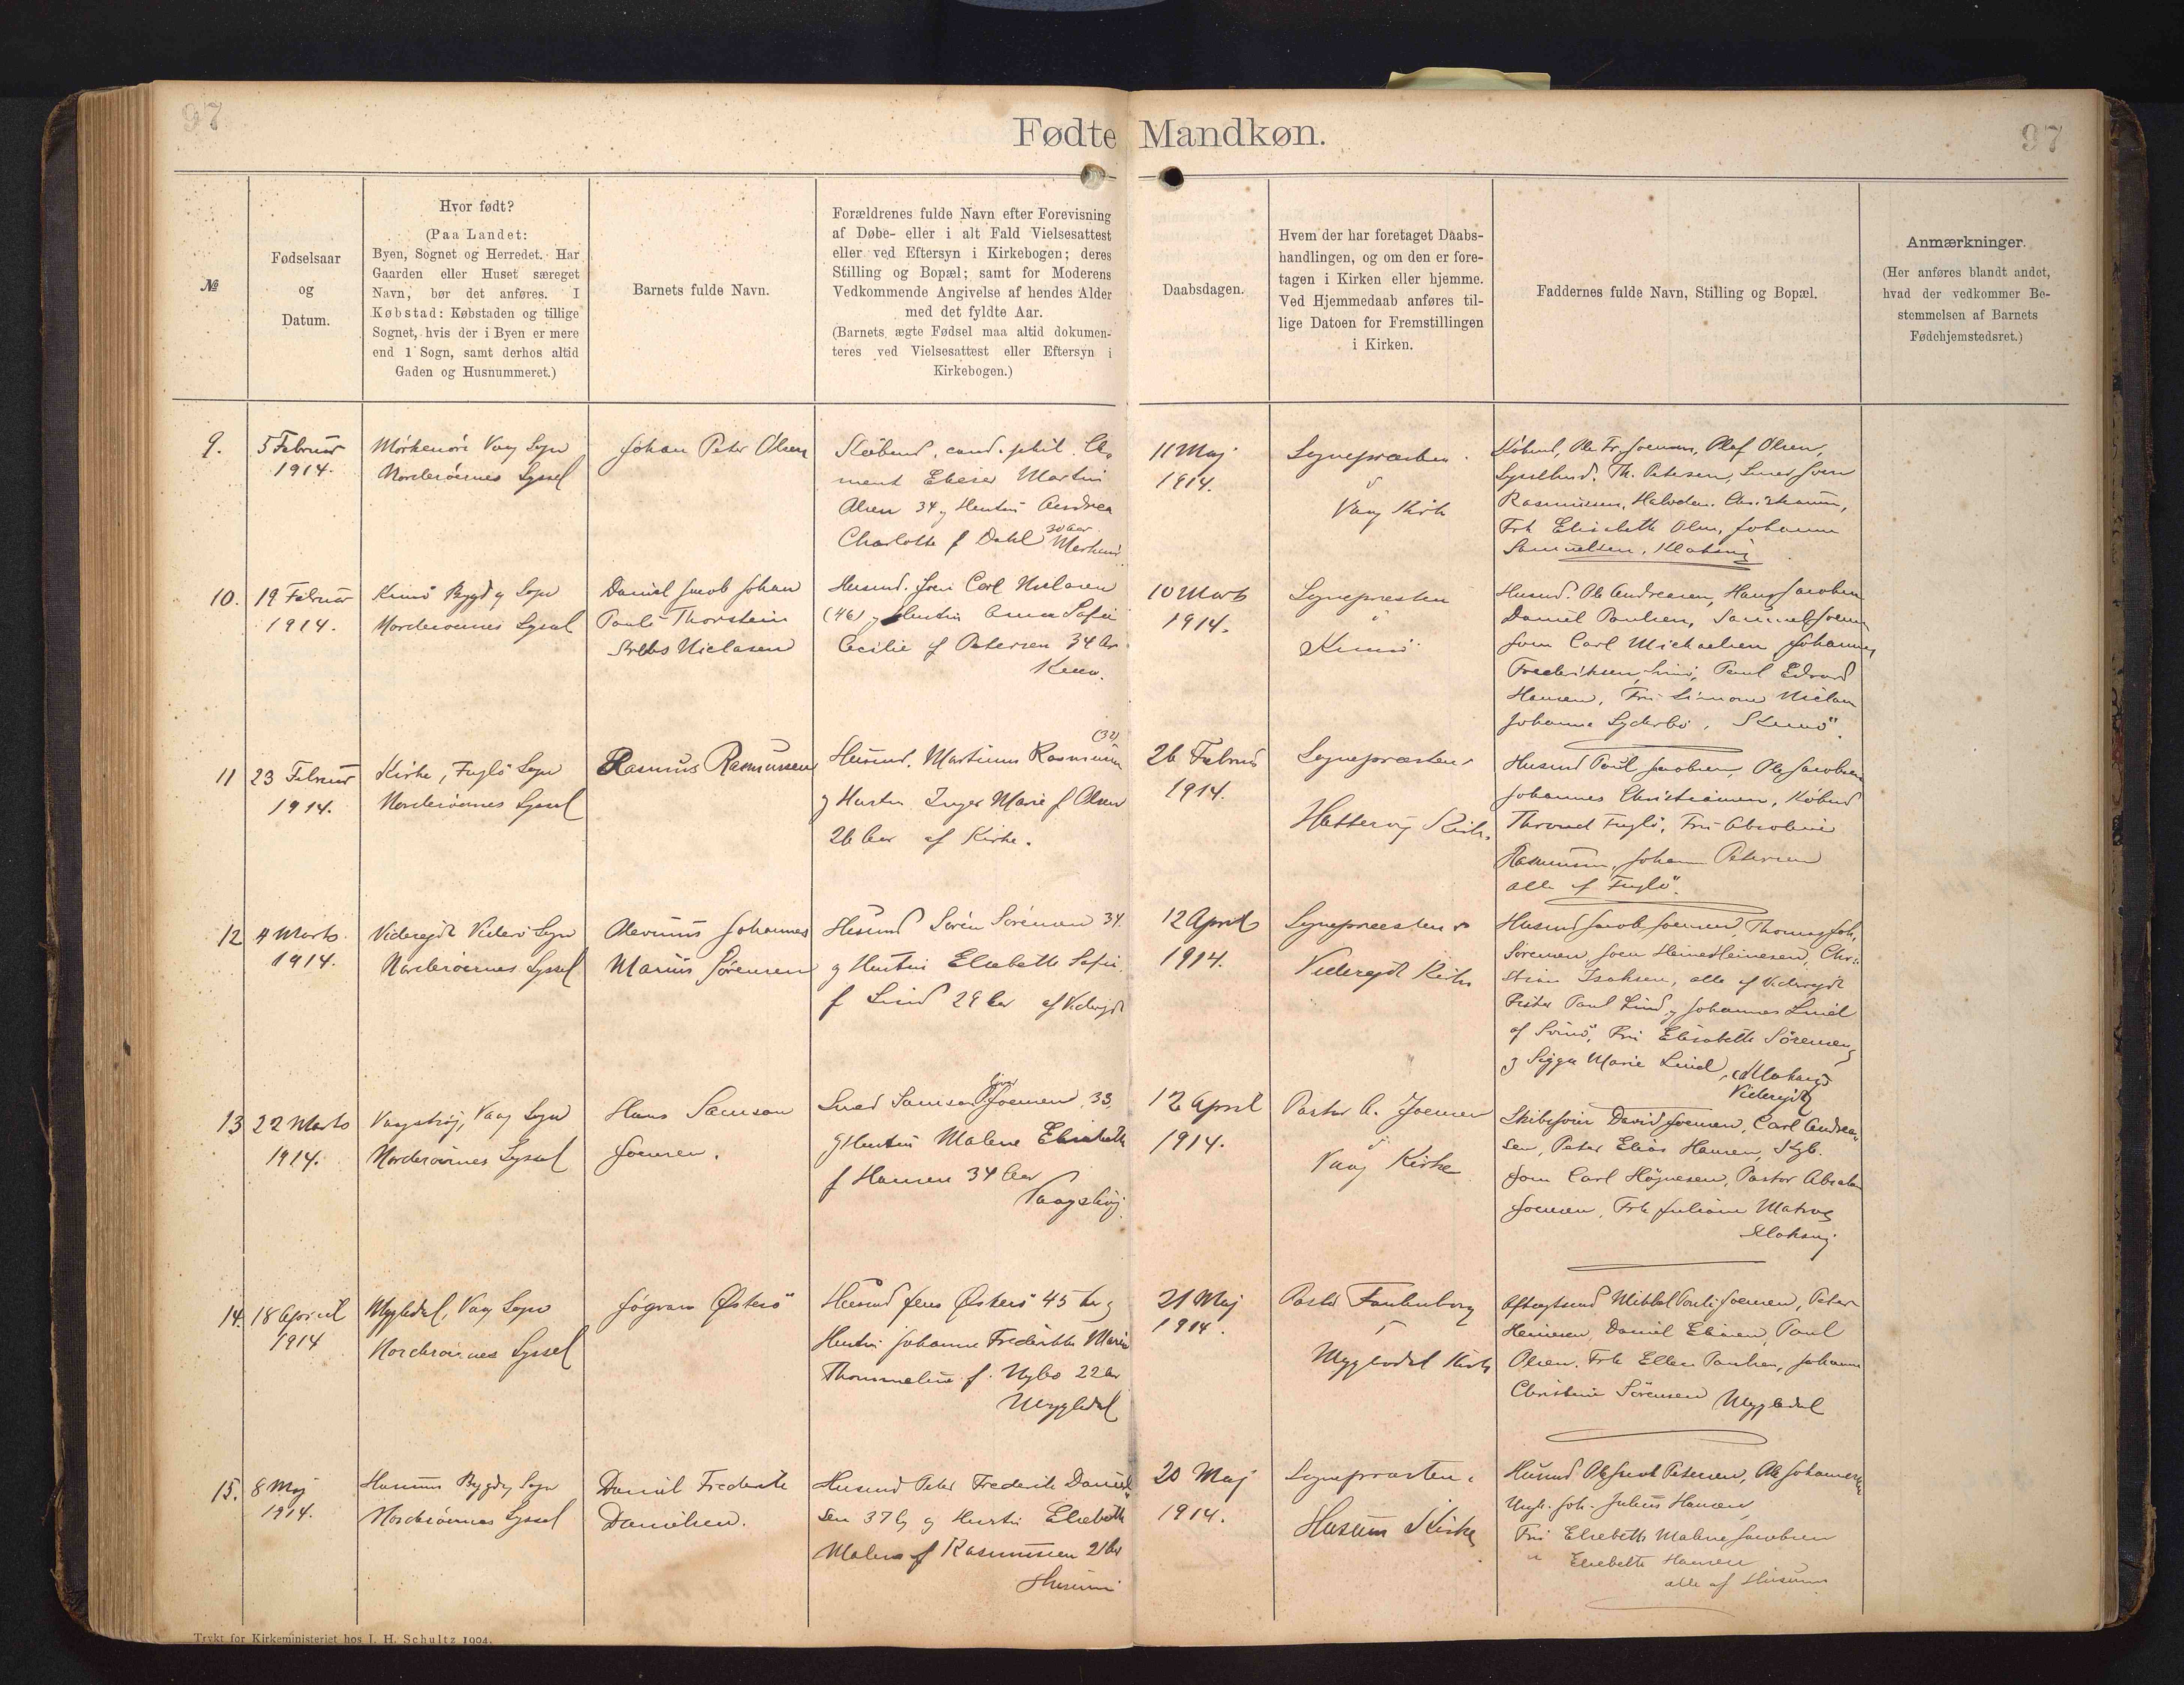 97
Fødte Mandkøn.
97
№
Fødselsaar
og
Datum.
Hvor født?
(Paa Landet:
Byen, Sognet og Herredet. Har
Gaarden eller Huset særeget
Navn, bør det anføres. I
Købstad: Købstaden og tillige
Sognet, hvis der i Byen er mere
end 1 Sogn, samt derhos altid
Gaden og Husnummeret.)
Barnets fulde Navn.
Forældrenes fulde Navn efter Forevisning
af Døbe- eller i alt Fald Vielsesattest
eller ved Eftersyn i Kirkebogen; deres
Stilling og Bopæl; samt for Moderens
Vedkommende Angivelse af hendes Alder
med det fyldte Aar.
(Barnets ægte Fødsel maa altid dokumen-
teres ved Vielsesattest eller Eftersyn i
Kirkebogen.)
Daabsdagen.
Hvem der har foretaget Daabs-
handlingen, og om den er fore-
tagen i Kirken eller hjemme.
Ved Hjemmedaab anføres til-
lige Datoen for Fremstillingen
i Kirken.
Faddernes fulde Navn, Stilling og Bopæl.
Anmærkninger.
(Her anføres blandt andet,
hvad der vedkommer Be-
stemmelsen af Barnets
Fødehjemstedsret.)
9.
5 Februar
1914.
Vaag Sogn
Norderøernes Syssel
Johan Peter Olsen
Købmd, cand. phil. Cle-
ment Elieser Martin
Olsen 34 og Hustru Andrea
Charlotte f Dahl 30 Aar
11 Maj
1914.
Sognepræsten
i
Vaag Kirke
Købmd, Ole Fr. Joensen, Olaf Olsen,
Sysselmd. Th. Petersen, Smed Joen
Rasmussen, Halvdan Christiansen,
Frk Elisabeth Olsen, Johanne
Samuelsen, Klaksvig
10.
19 Februar
1914.
Kunø Bygd og Sogn
Norderøernes Syssel
Daniel Jacob Johan
Pauli Thorstein
Niclasen
Husmd. Joen Carl Niclasen
(46) og Hustru Anna Sofie
Cecilie f Petersen 34 Aar
Kunø.
10 Marts
1914.
Sognepræsten
i
Kunø
Husmd. Ole Andreasen, Hans Jacobsen
Daniel Poulsen, Samuel Joensen
Joen Carl Michaelsen, Johannes
Frederiksen, Poul Edvard
Hansen, Fru Simone Niclasen
Johanne Syderbø, Kunø.
11
23 Februar
1914.
Kirke, Fuglø Sogn
Norderøernes Syssel
Rasmus Rasmussen
Husmd. Martinus Rasmussen (32)
og Hustru Inger Marie f Olsen
26 Aar af Kirke.
26 Februar
1914.
Sognepræsten
Hattervig Kirke
Husmd Poul Jacobsen, Ole Jacobsen
Johannes Christiansen, Købmd
Thrond Fuglø, Fru Absoline
Rasmussen, Johanne Petersen
alle af Fuglø.
12
4 Marts
1914.
Viderejde Viderø Sogn
Norderøernes Syssel
Johannes
Marius Sørensen
Husmd Sørin Sørensen 34.
og Hustru Elsebeth Sofie
f Lind 29 Aar af Viderejde
12 April
1914.
Sognepræsten
Viderejde Kirke
Husmd Jacob Joensen, Thomas Joh.
Sørensen Joen Heine Heinesen, Chri-
stian Isaksen, alle af Viderejde
Peiter Poul Lind og Johannes Lind
af Svinø, Fru Elisabeth Sørensen
og Sigga Marie Lind,
Viderejde
13
22 Marts
1914.
Vaagshøj, Vaag Sogn
Norderøernes Syssel
Hans Samson
Joensen.
Smed Samson Joensen 33,
og Hustru Malene Elisabeth
f Hansen 34 Aar
Vaagshøj.
12 April
1914.
Pastor A. Joensen
i
Vaag Kirke
David Joensen, Carl Andrea-
sen, Peter Elias Hansen,
Joen Carl Høgnesen, Pastor Abraham
Joensen, Frk Juliane Matras
Klaksvig
14.
18 April
1914
Mygledal, Vaag Sogn
Norderøernes Syssel
Jógvan Østerø
Husmd Jens Østerø 45 Aar og
Hustru Johanne Frederikke Marie
Thommeline f. Nybo 22 Aar
Mygledal
21 Maj
1914.
Pastor
i
Mygledal Kirke
Aftægtsmd Mikkel Pauli Joensen, Peter
Heinesen, Daniel Eliasen, Poul
Olsen. Frk Ellen Poulsen, Johanne
Christine Sørensen Mygledal
15.
8 Maj
1914.
Husum Bygd og Sogn
Norderøernes Syssel
Daniel Frederik
Danielsen.
Husmd Peter Frederik Daniel-
sen 37 og Hustru Elsebeth
Malene f Rasmussen 21 Aar
Husum
20 Maj
1914.
Sognepræsten i
Husum Kirke
Husmd Ole Jacob Petersen, Ole Johannesen
Ungk. Joh. Julius Hansen,
Fru Elsebeth Malene Jacobsen
" Elsebeth Hansen
alle af Husum
Trykt for Kirkeministeriet hos J. H. Schultz 1904.